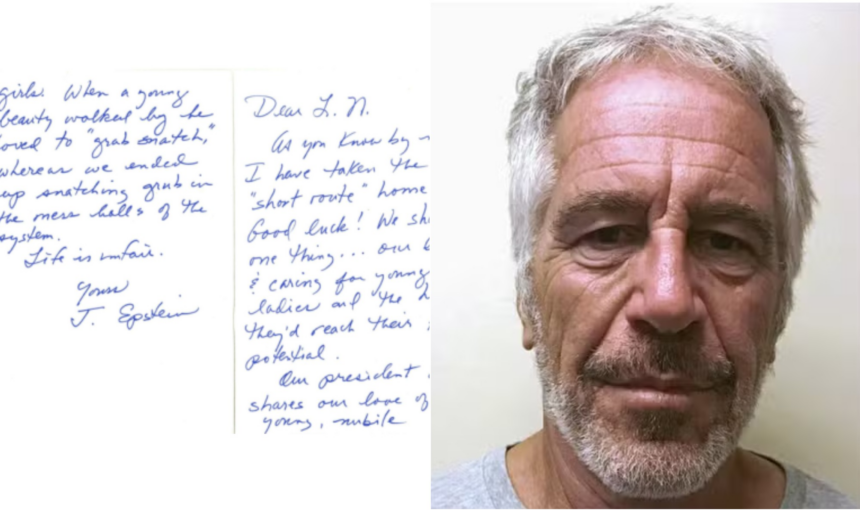 girls. When a young
beauty walked by he
loved to "grab snatch,"
whereas we ended
up snatching grub in
the mess halls of the
system.
Life is unfair.
Yours
J. Epstein
Dear L. N.
As you know by
I have taken the
"short route" home
Good luck! We sh
one thing... our
& caring for young
ladies and the h
they'd reach their
potential.
Our president
shares our love of
young, nubile